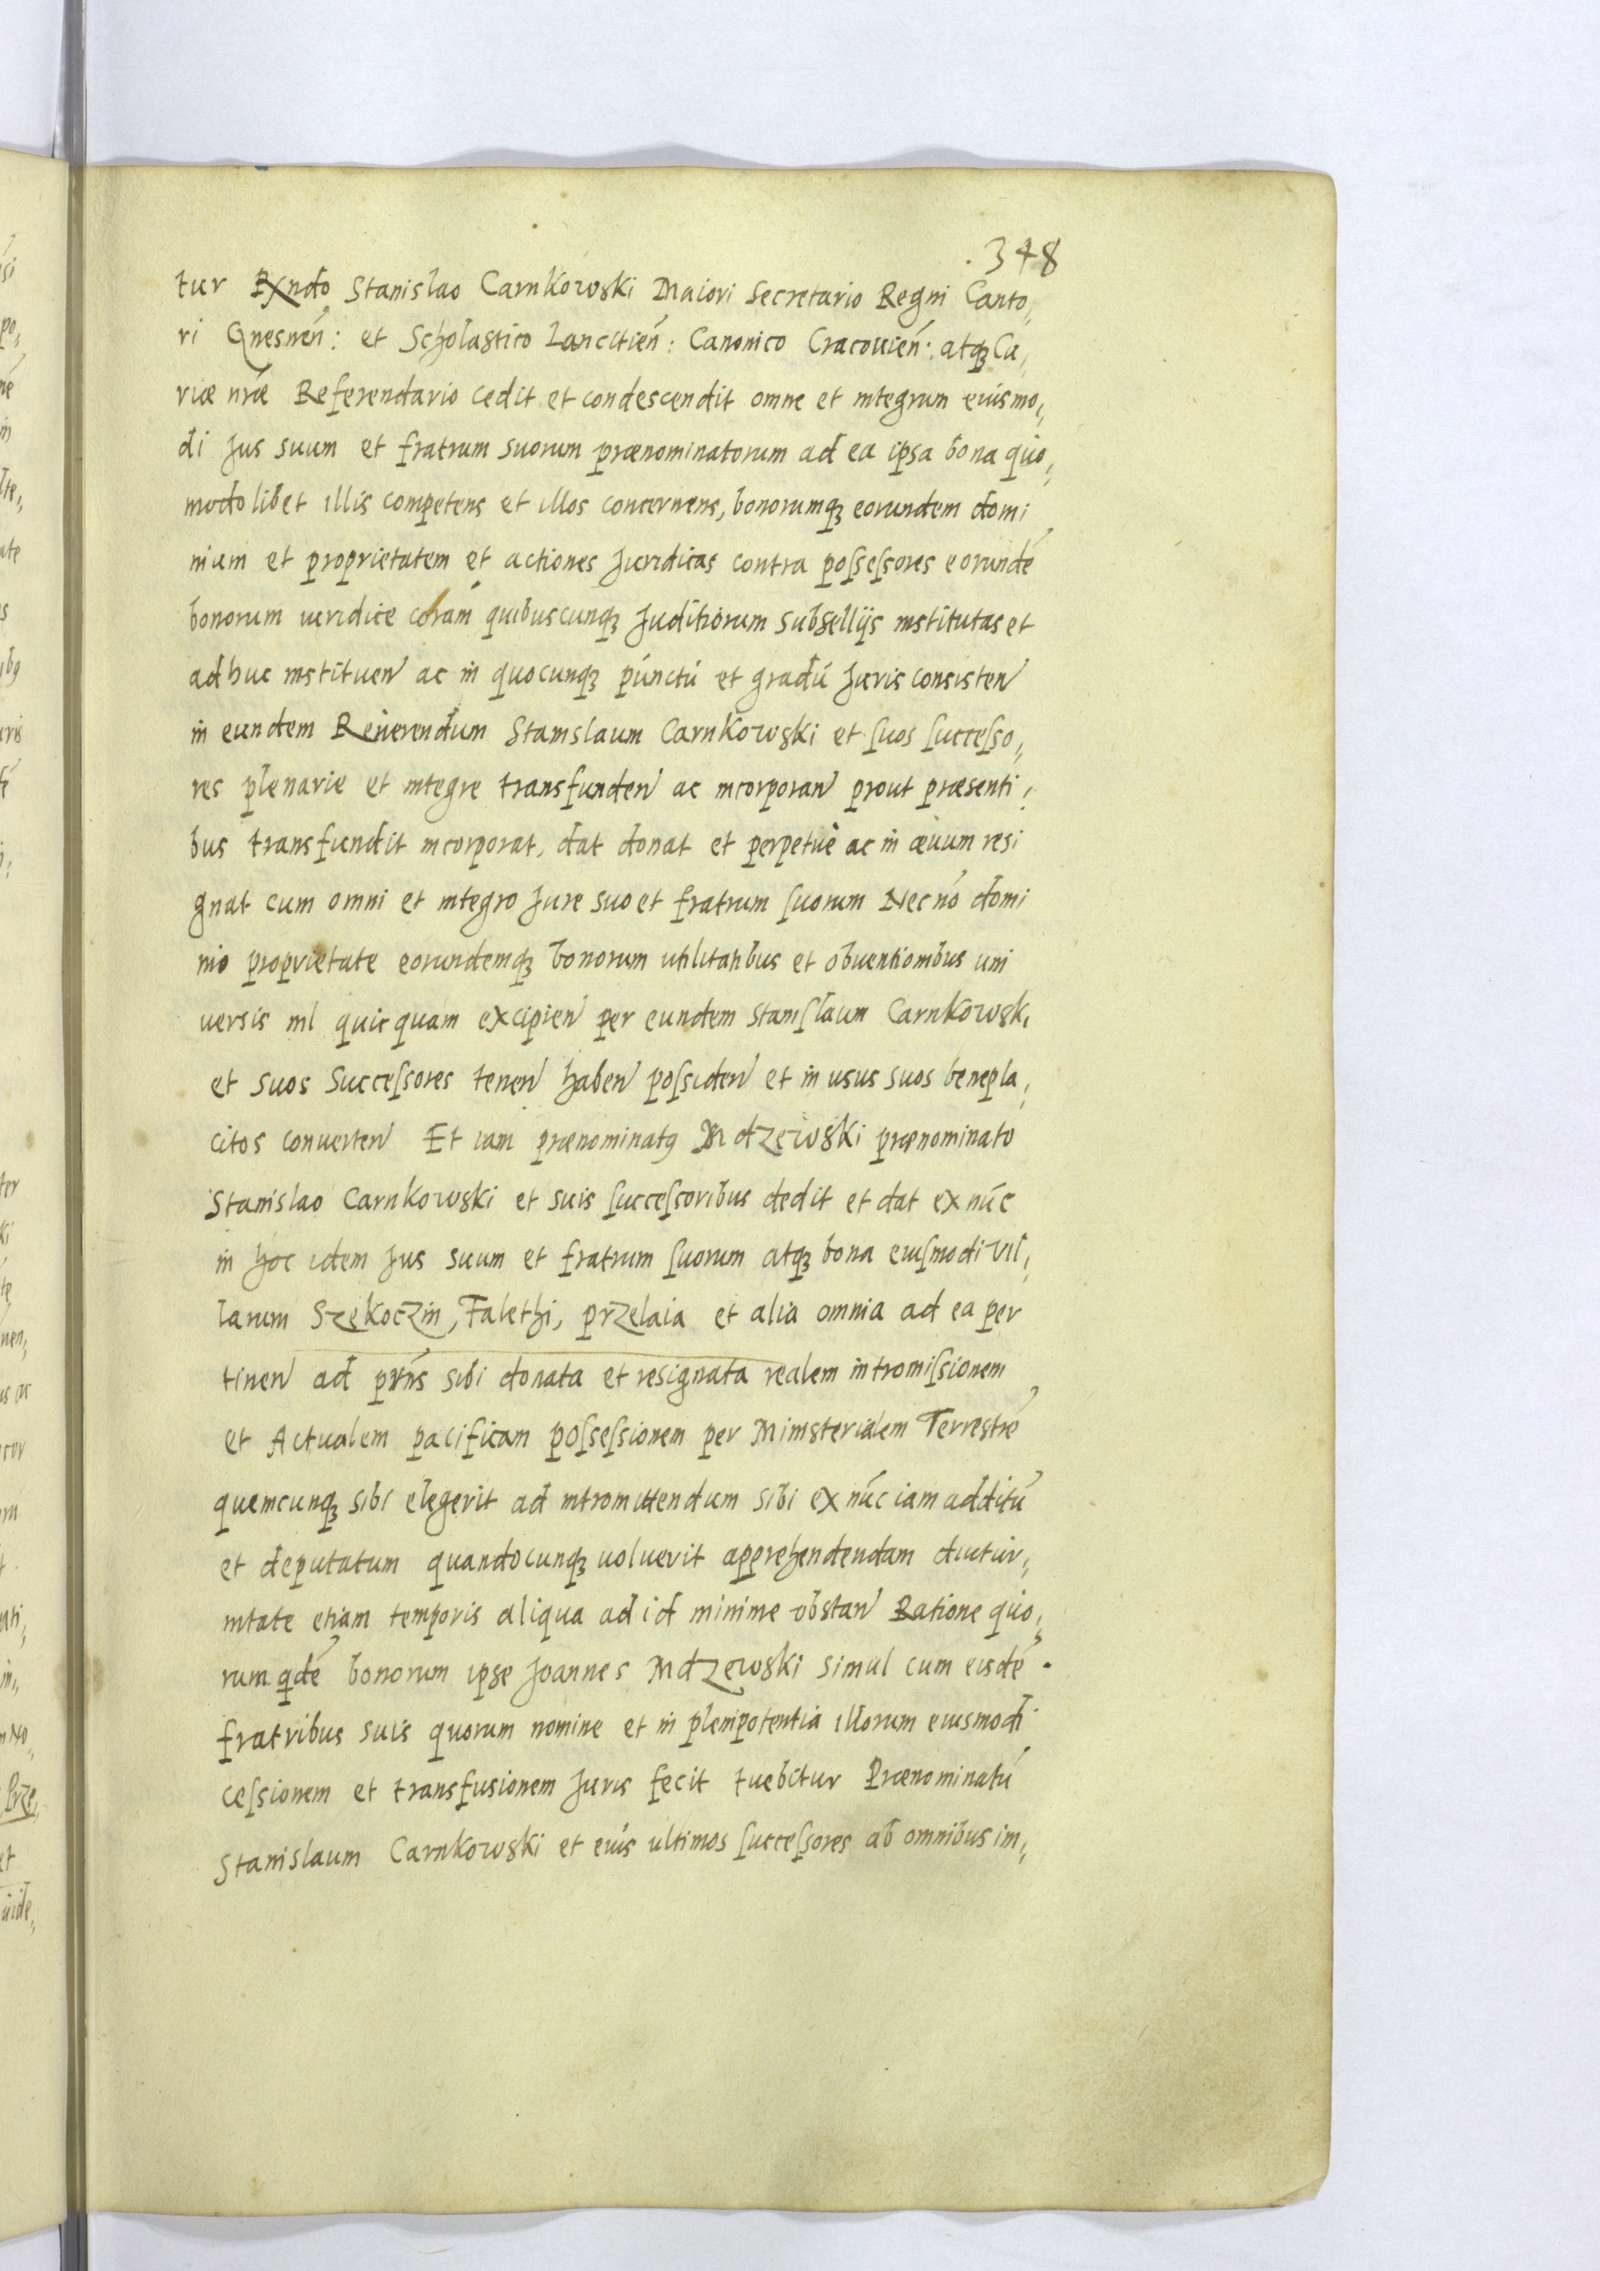 .348
tur Rxndo Stanislao Carnkowski Maiori Secretario Regni Canto,
ri Gnesnen̄: et Scholastico Lancitien̄: Canonico Cracouien̄: atqȝ Cu,
riæ nr̄æ Referendario cedit et condescendit omne et integrum eiusmo,
di Jus suum et fratrum suorum prænominatorum ad ea ipsa bona quo,
modolibet illis competens et illos concernens, bonorumqȝ eorundem domi
nium et proprietatem et actiones Juridicas contra poſseſsores eorundē
bonorum ueridice coram quibuscunqȝ Juditiorum Subsellijs institutas et
adhuc instituen̄ ac in quocunqȝ punctu et gradu Juris consisten̄
in eundem Reuerendum Stanislaum Carnkowski et ſuos ſucceſso,
res plenarie et integre transfunden̄ ac incorporan̄ prout præsenti,
bus transfundit incorporat, dat donat et perpetuè ac in æuum resi
gnat cum omni et integro Jure suo et fratrum ſuorum Nec nō domi
nio proprietate eorundemqȝ bonorum utilitatibus et obuentionibus uni
uersis nil quicquam excipien̄ per eundem Staniſlaum Carnkowski
et suos Succeſsores tenen̄ haben̄ poſsiden̄ et in usus suos benepla,
citos conuerten̄ Et iam prænominatꝰ Mdzewski prænominato
Stanislao Carnkowski et suis ſucceſsoribus dedit et dat ex nūc
in hoc idem Jus suum et fratrum ſuorum atqȝ bona eiuſmodi vil,
larum Szękoczin, Falethi, przelaia et alia omnia ad ea per
tinen̄ ad prn̄s sibi donata et resignata realem intromiſsionem
et Actualem pacificam poſseſsionem per Ministerialem Terrestrē
quemcunqȝ sibi elegerit ad intromittendum sibi ex nūc iam additū
et deputatum quandocunqȝ uoluerit apprehendendam diutur,
nitate etiam temporis aliqua ad id minime obstan̄ Ratione quo,
rum qdē bonorum ipse Joannes Mdzewski simul cum eisdē
fratribus suis quorum nomine et in plenipotentia illorum eiusmodi
ceſsionem et transfusionem Juris fecit tuebitur Prænominatū
Stanislaum Carnkowski et eius ultimos ſucceſsores ab omnibus im,